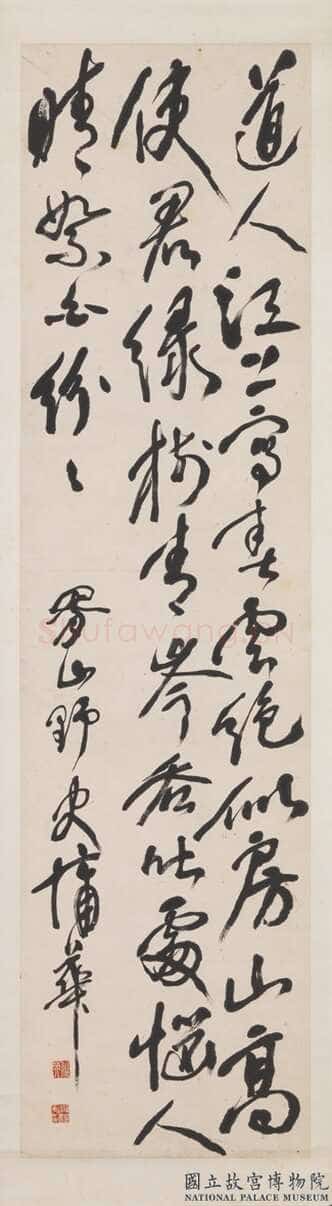 道人江上寫春雲絕似房山高
使君綠樹青岑吞吐處惱人
晴絮白紛〻
胥山野史蒲華
Shufawang.CN
國立故宮博物院
NATIONAL PALACE MUSEUM